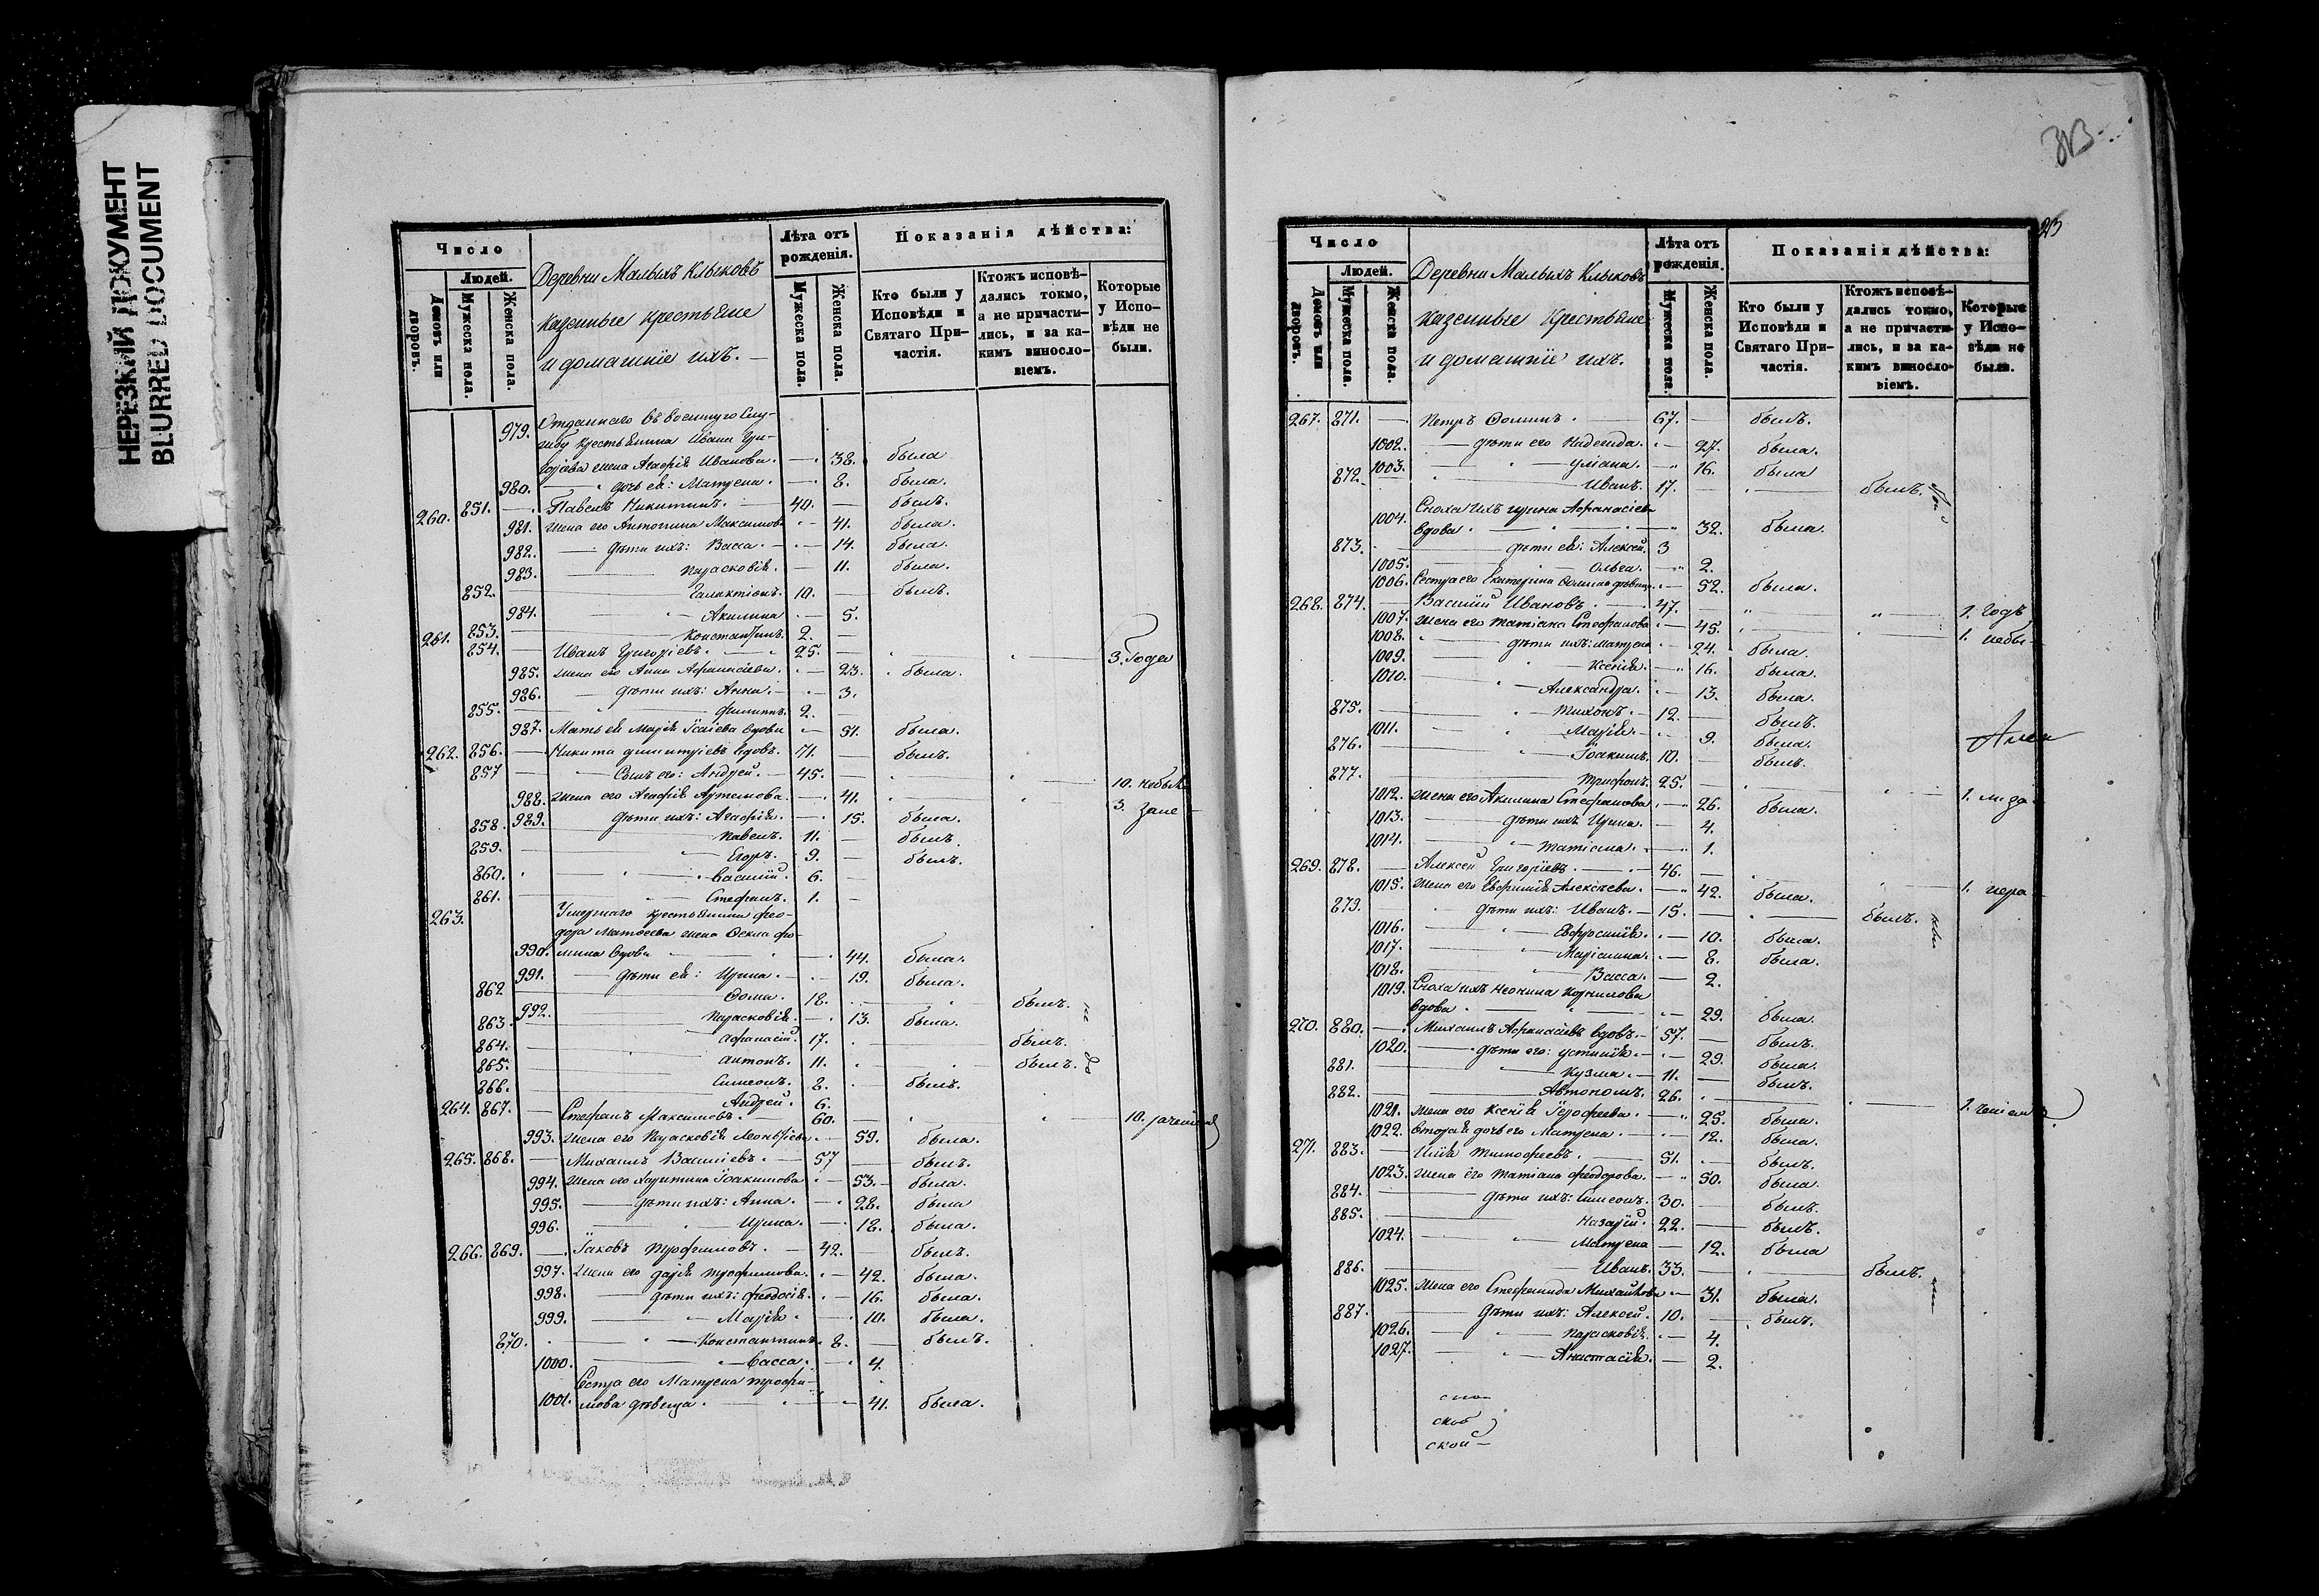 НЕРЕЗКИЙ ДОКУМЕНТ
BLURRED DOCUMENT
Число
Людей.
Домовъ или дворовъ.
Мужеска пола.
Женска пола.
Деревни Малыхъ Клыковъ
казенные крестьяне
и домашніе ихъ. —
Лѣта отъ рожденія.
Мужеска пола.
Женска пола.
Показанія дѣйства:
Кто были у Исповѣди и Святаго Причастія.
Ктожъ исповѣдались токмо, а не причастились, и за какимъ винословіемъ.
Которые у Исповѣди не были.
979. Отданнаго въ военную слу-
жбу крестьянина Ивана Гри-
горіева жена Агафія Иванова. — 38. была
980. — дочь ея: Матрена. — 8. была.
260. 851. — Павелъ Никитинъ. — 40. — былъ.
981. Жена его Антонина Максимова — 41. была.
982. — дѣти ихъ: Васса. — 14. была.
983. — Парасковія. — 11. была.
852. — Галактіонъ. 10. — былъ.
984. — Акилина — 5.
853. — Константинъ. 2. —
261. 854. — Иванъ Григоріевъ. — 25. — 3. Года
985. Жена его Анна Афанасіева. — 23. была.
986. — дѣти ихъ: Анна. — 3.
855. — Филиппъ. 2. —
987. Мать ея Марія Ісаіева вдова — 51. была.
262. 856. — Никита Димитріевъ вдовъ. 71. — былъ.
857 — Сынъ его: Андрей. — 45. — 10. небыл
988. Жена его Агафія Артемова. — 41. — 3. Запе
989. дѣти ихъ: Агафія. — 15. была.
858. — Павелъ. 11. — былъ.
859. — Егоръ. 9. — былъ.
860. — Василій. 6. —
861. — Стефанъ. 1. —
263. Умершаго крестьянина Фео-
дора Матвеева жена Фекла Фо-
990. мина вдова — 44. была.
991. — дѣти ея: Ирина. — 19. была.
862 — Фома. 18. — былъ.
992. — Парасковія. — 13. была.
863. — Афанасій. 17. — былъ.
864. — Антонъ. 11. былъ.
865. — Симеонъ. 8. былъ.
866. — Андрей. 6.
264. 867. — Стефанъ Максимовъ. 60. — 10.
993. Жена его Парасковія Леонтіева. — 59. была.
265. 868. — Михаилъ Василіевъ. — 57 — былъ.
994. Жена его Харитина Іоакимова — 53. — была.
995. — дѣти ихъ: Анна. — 28. была
996. — Ирина. — 18. была.
266. 869. — Іаковъ Трофимовъ. — 42. — былъ.
997. Жена его Дарія Трофимова. — 42. была.
998. — дѣти ихъ: Феодосія. — 16. была.
999. — Марія. — 10. была.
870. — Константинъ. 8. — былъ.
1000. — Васса. — 4.
Сестра его Матрена Трофи-
1001. мова дѣвица. — 41. была.
313
Число
Людей.
Домовъ или дворовъ.
Мужеска пола.
Женска пола.
Деревни Малыхъ Клыковъ
казенные Крестьяне
и домашніе ихъ.
Лѣта отъ рожденія.
Мужеска пола.
Женска пола.
Показанія дѣйства:
Кто были у Исповѣди и Святаго Причастія.
Ктожъ исповѣдались токмо, а не причастились, и за какимъ винословіемъ.
Которые у Исповѣди не были.
267. 871. — Петръ Фоминъ. — 67. — былъ.
1002. — дѣти его Надежда. — 27. была.
1003. — Уліана. — 16. была
872. — Иванъ. 17. — былъ.
Сноха ихъ Ирина Афанасіева
1004. вдова — 32. была.
873. — дѣти ея: Алексей. 3
1005. — Ольга. — 2.
1006. Сестра его Екатерина Фомина дѣвица. — 52. была.
268. 874. — Василій Ивановъ. — 47. — 1. Годъ
1007. Жена его Татіана Стефанова — 45. — 1. небы
1008. — дѣти ихъ: Матрена — 24. была.
1009. — Ксенія. — 16. была.
1010. — Александра. — 13. была.
875. — Тихонъ. — 12. — былъ.
1011. — Марія. — 9. была.
876. — Іоакимъ. 10. — былъ.
877. — Трифонъ. 25. — 1.
1012. Жена его Акилина Стефанова. — 26. была.
1013. — дѣти ихъ Ирина. — 4.
1014. — Татіана. — 1.
269. 878. — Алексей Григоріевъ. — 46. — 1.
1015. Жена его Евфимія Алексѣева. — 42. была.
879. — дѣти ихъ: Иванъ. — 15. — былъ.
1016. — Евфросинія. — 10. была.
1017. — Маріанна. — 8. была.
1018. — Васса. — 2.
1019. Сноха ихъ Неонила Корнилова
вдова — 29. была.
270. 880. — Михаилъ Афанасіевъ вдовъ. — 57. — былъ.
1020. — дѣти его: Устинія. — 29. была.
881. — Кузма. — 11. — былъ.
882. — Автономъ. 26. — 1.
1021. Жена его Ксенія Іерофеева. — 25. была.
1022. Вторая дочь его Матрена. — 12. была.
271. 883. — Илія Тимофеевъ. — 51. — былъ.
1023. Жена его Татіана Феодорова. — 50. была.
884. — дѣти ихъ: Симеонъ. 30. — былъ.
885. — Назарій. 22. — былъ.
1024. — Матрена — 12. была
886. — Иванъ. 33. — былъ.
1025. Жена его Стефанида Михайлова — 31. была.
887. — дѣти ихъ: Алексей. 10. — былъ.
1026. — Параскевія. — 4.
1027. — Анастасія. — 2.
ской —